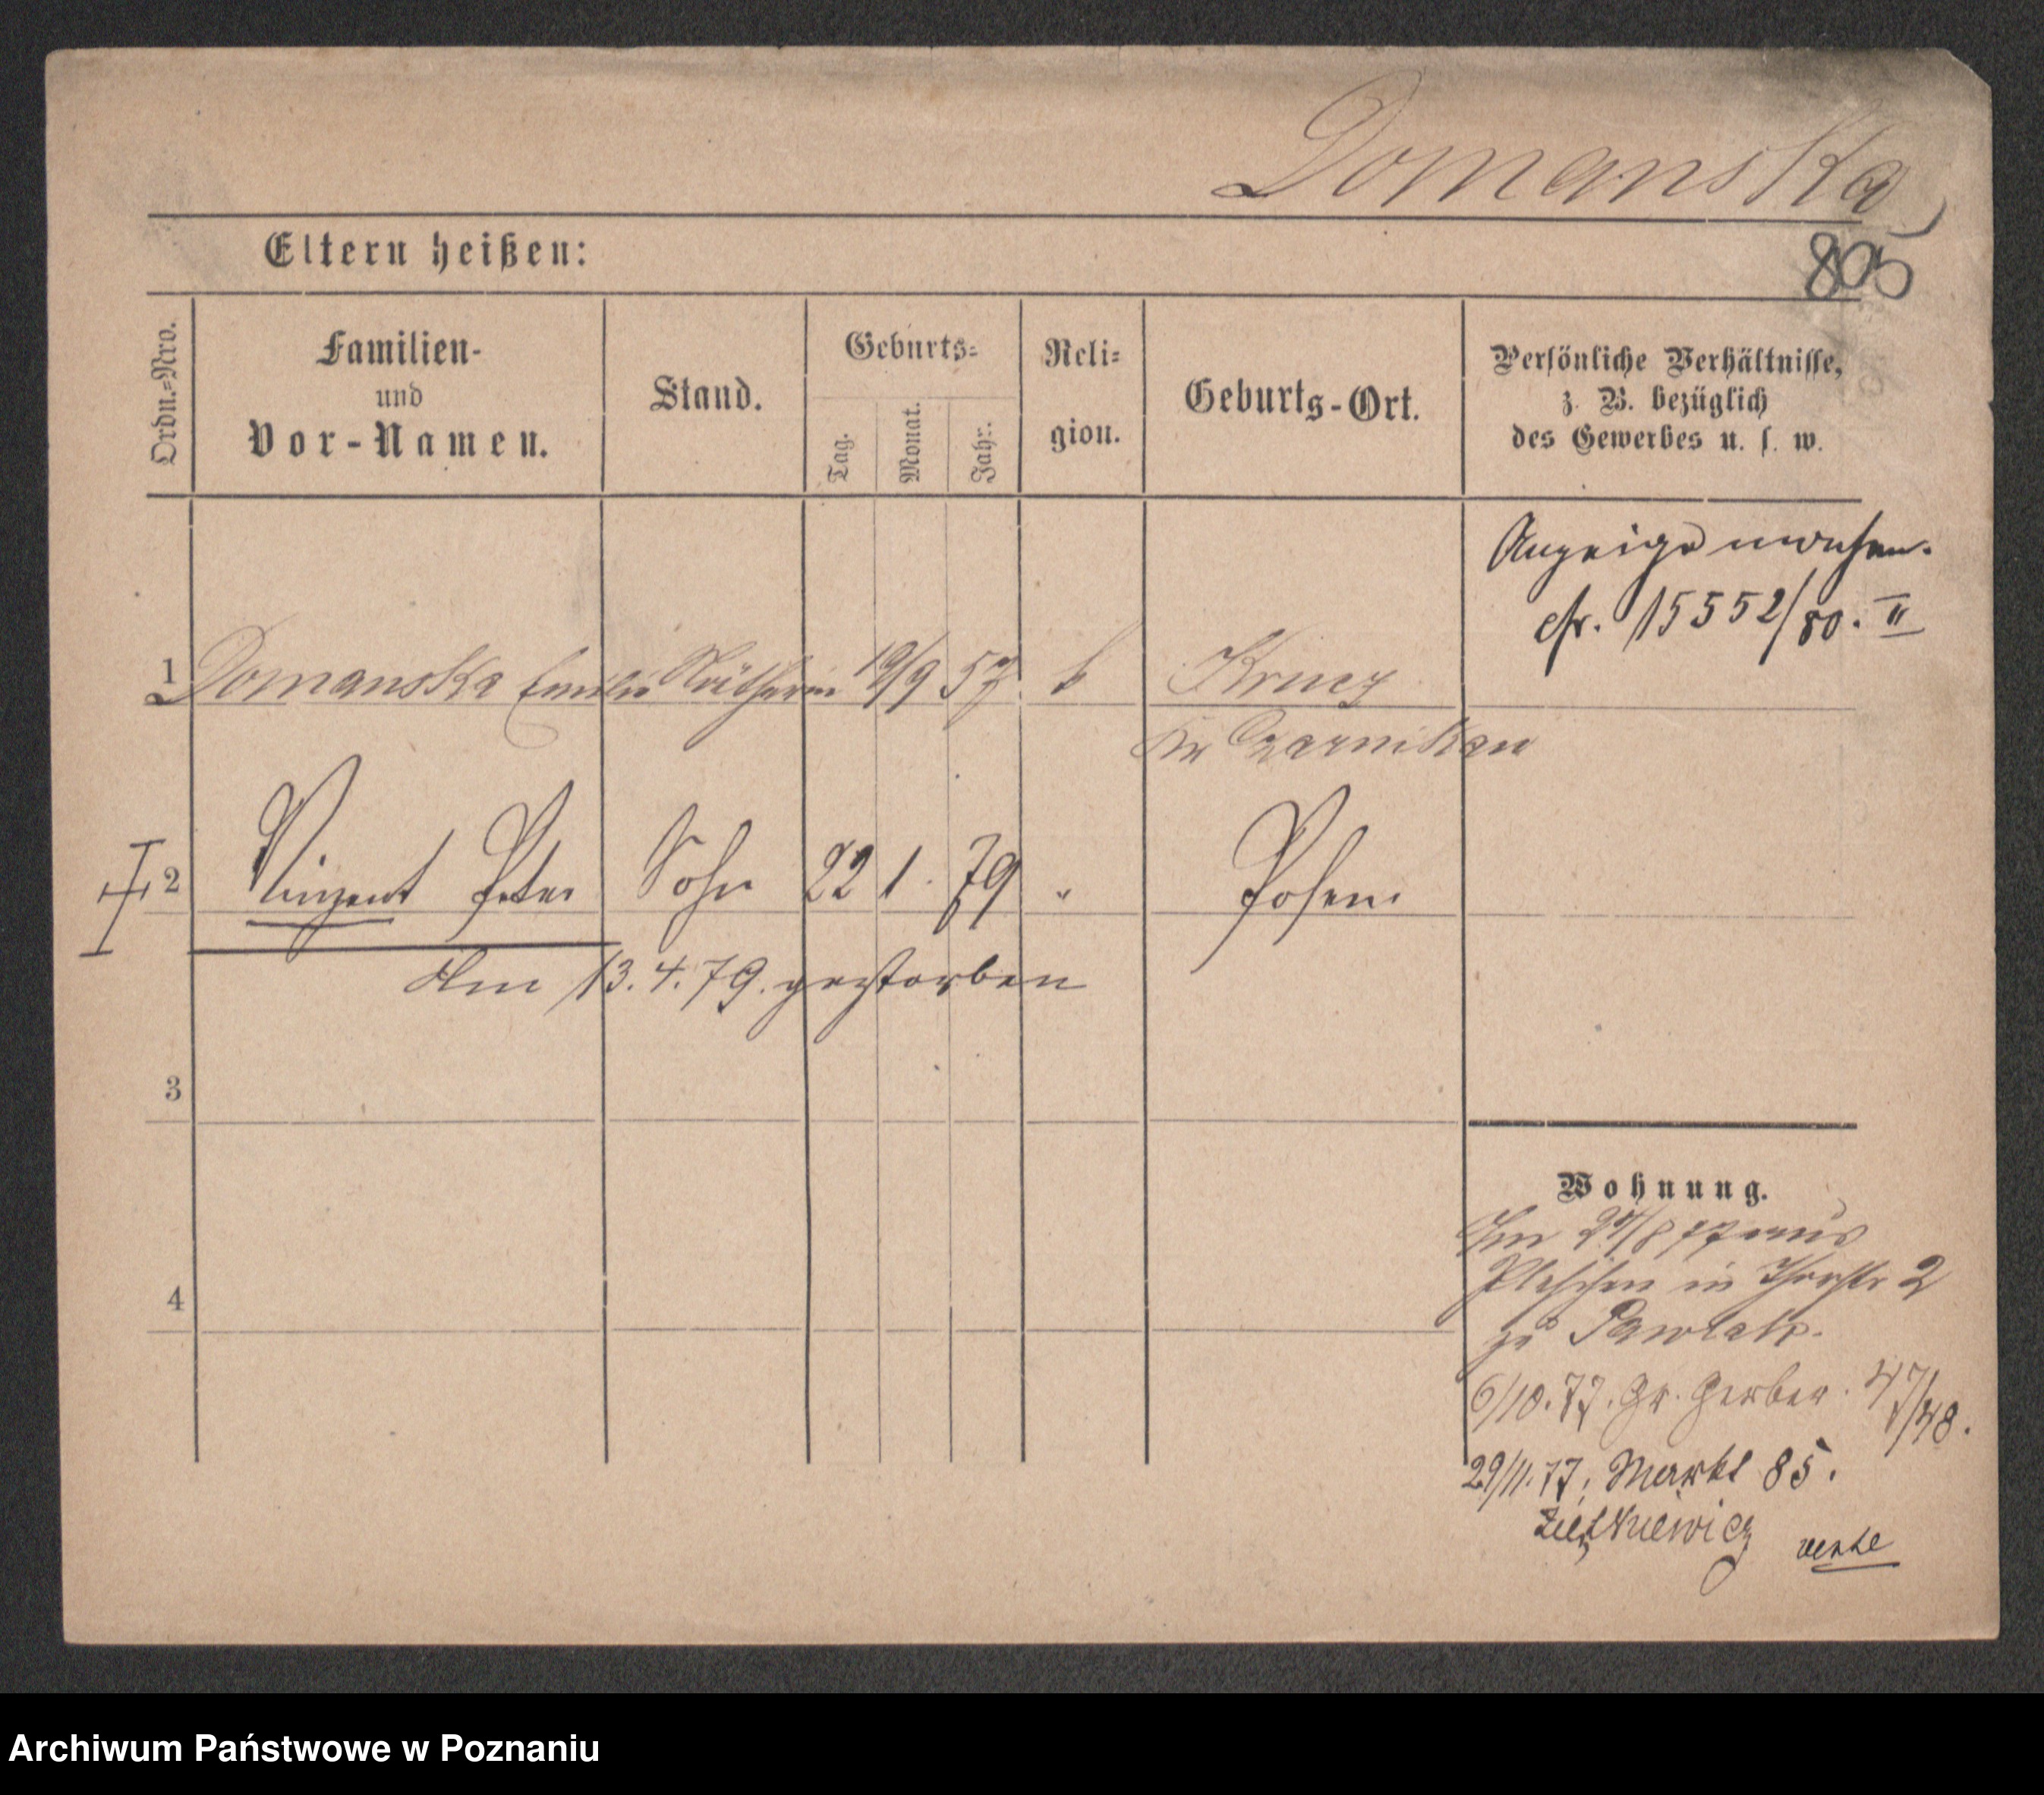 Domanska
805
Eltern heißen:
Ordn.=Nro.
Familien-
und
Vor-Namen.
Stand.
Geburts=
Tag.
Monat.
Jahr.
Reli=
gion.
Geburts-Ort.
Persönliche Verhältnisse,
z. B. bezüglich
des Gewerbes u. s. w.
Anzeige
cfr. 15552/80. II
1 Domanska Emilie 19/9 57 k Krucz
Kr Czarnikau
2 Vinzent Peter Sohn 22 1. 79 " Posen
Am 13.4.79. gestorben
3
4
Wohnung.
Am /8 77 aus
Pleschen in 2
zu Pawlak.
6/10.77. Gr. Gerber. 47/48.
29/11.77. Markt 85.
Archiwum Państwowe w Poznaniu